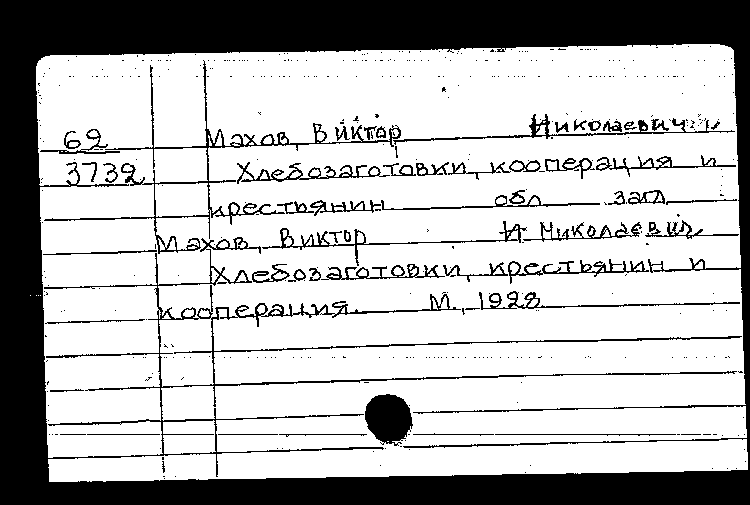 62 Махов, Виктор Николаевич
3732 Хлебозаготовки, кооперация и
крестьянин. обл. загл.
Махов, Виктор Николаевич
Хлебозаготовки, крестьянин и
кооперация. М., 1928